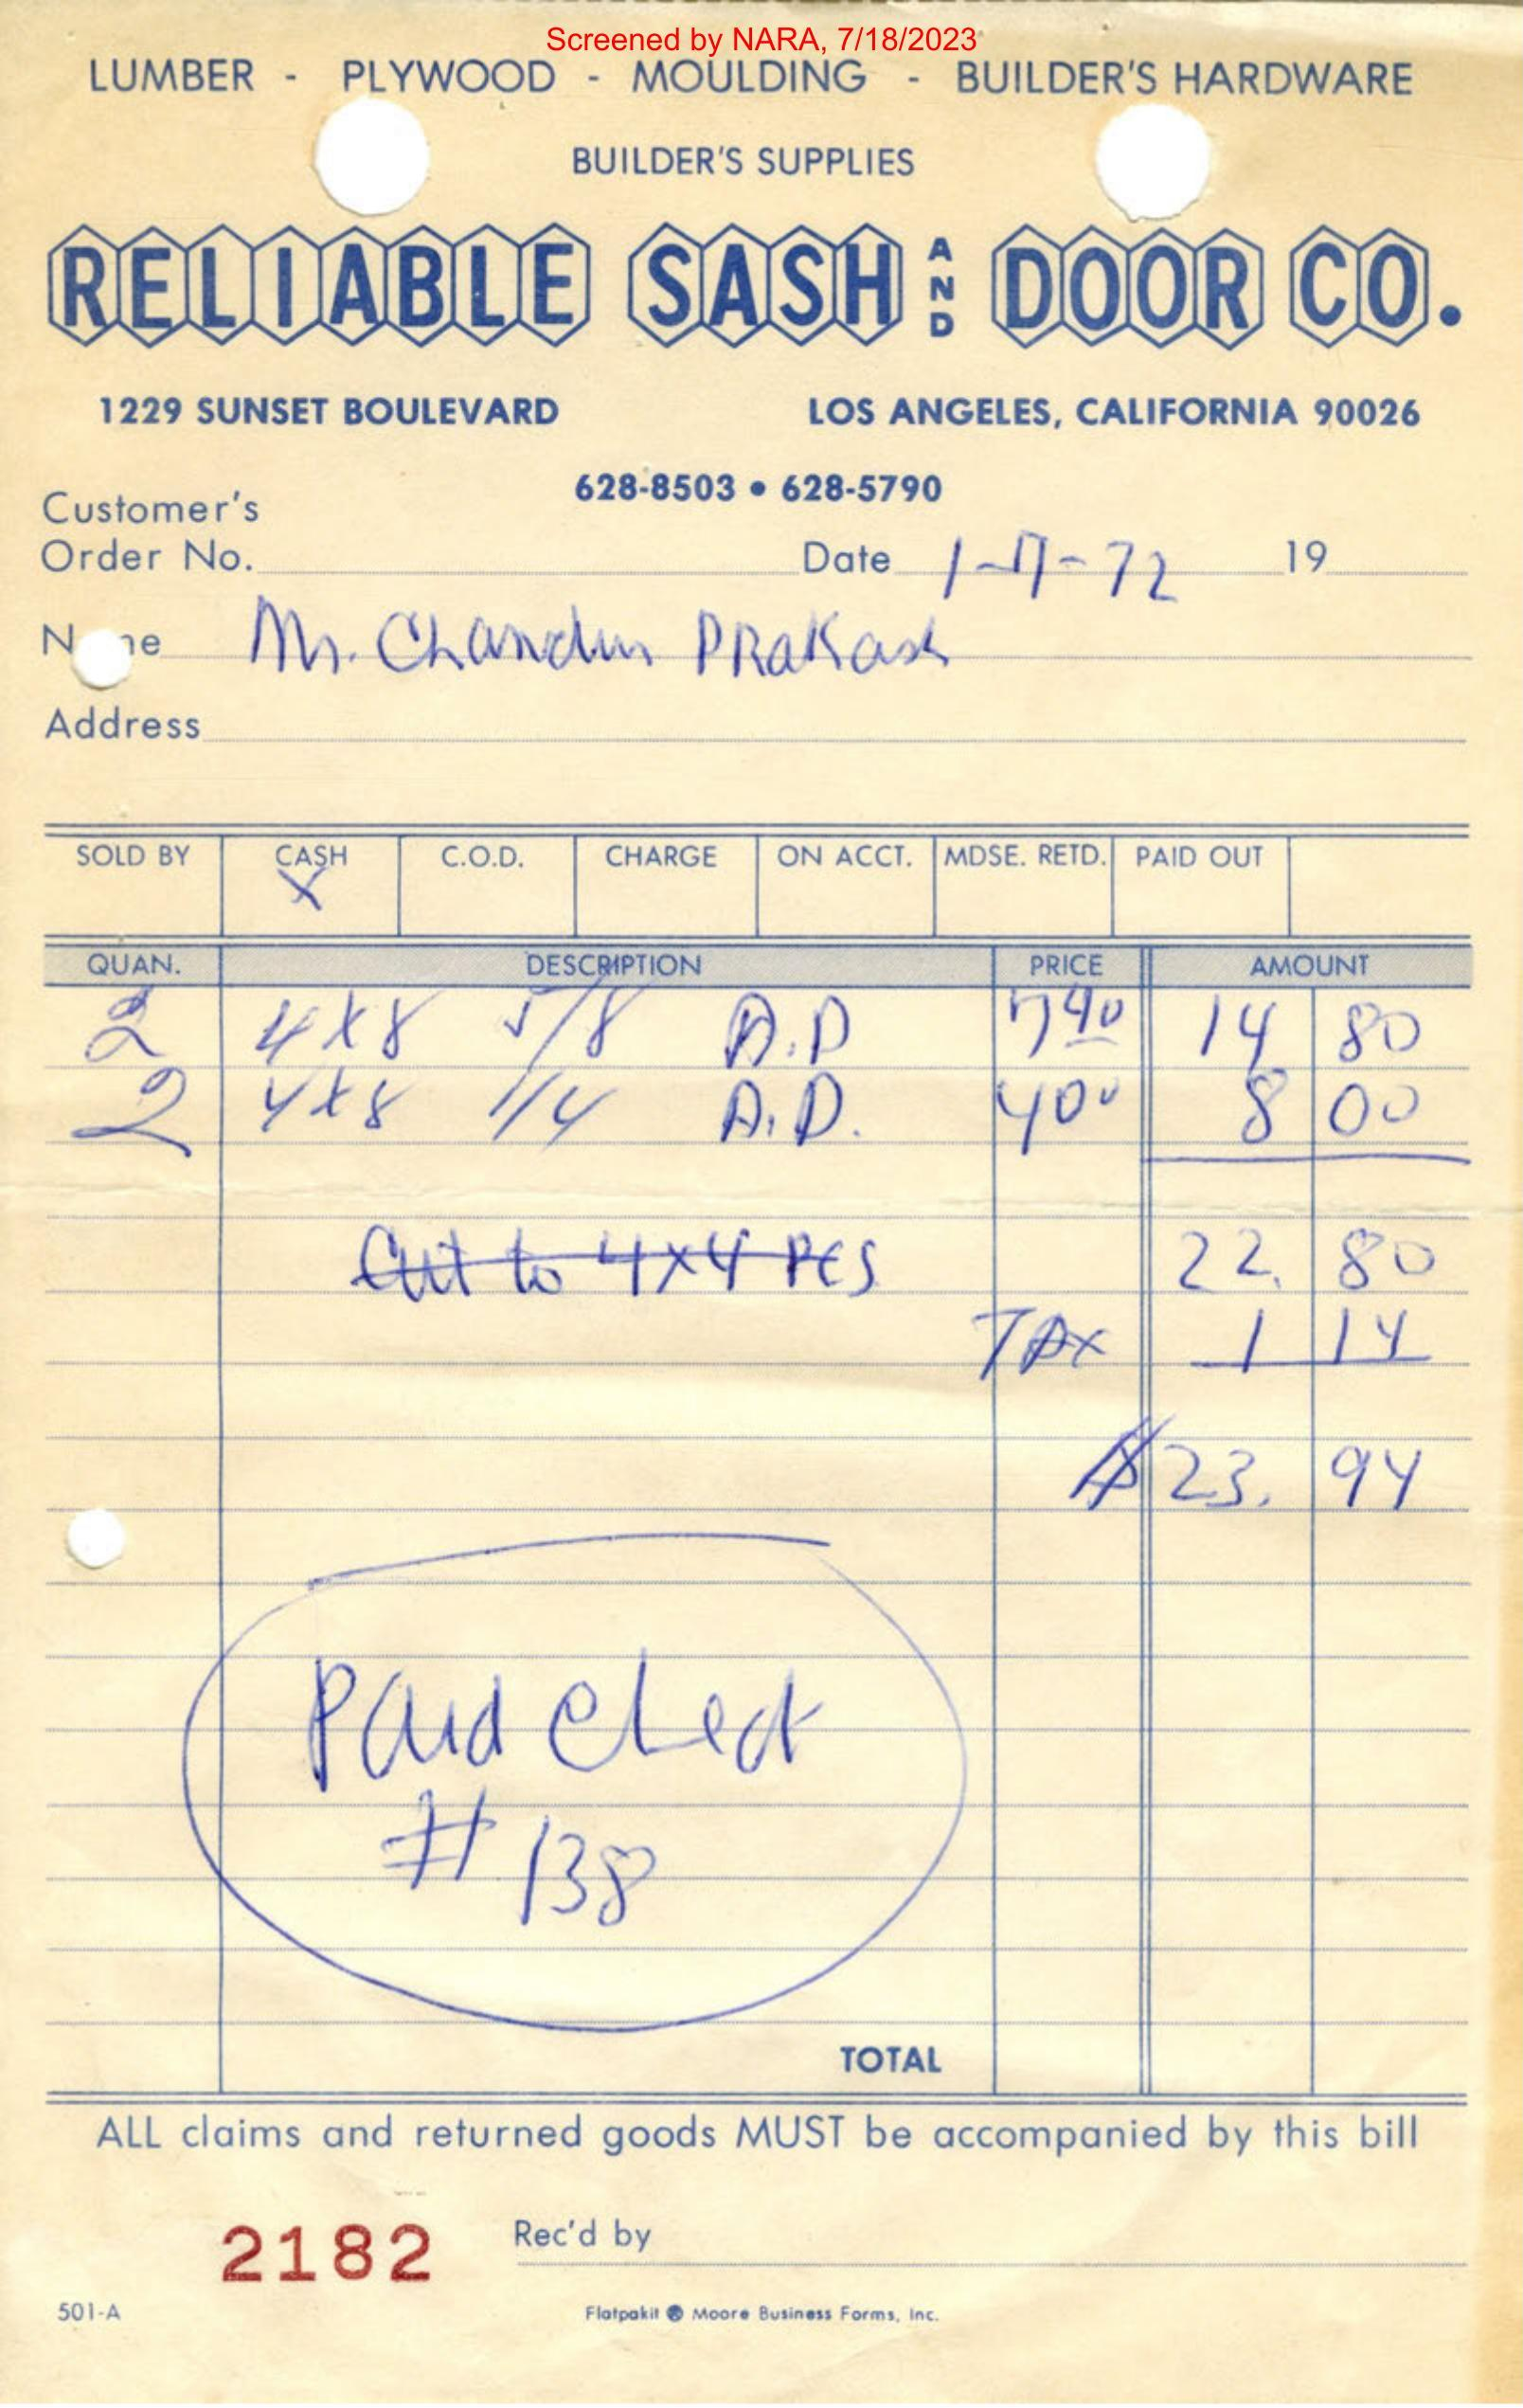 Screened by NARA, 7/18/2023
LUMBER - PLYWOOD - MOULDING - BUILDER'S HARDWARE
BUILDER'S SUPPLIES
RELIABLE SASH AND DOOR CO.
1229 SUNSET BOULEVARD LOS ANGELES, CALIFORNIA 90026
628-8503 • 628-5790
Customer's
Order No. Date 1-17-72 19
N me Mr. Chander PRaKash
Address
SOLD BY CASH C.O.D. CHARGE ON ACCT. MDSE. RETD. PAID OUT
X
QUAN. DESCRIPTION PRICE AMOUNT
2 4X8 5/8 A.D 7 40 14 80
2 4X8 1/4 A.D. 4 00 8 00
Cut to 4X4 PCS 22. 80
TAX 1 14
$ 23. 94
Paid Check
# 138
TOTAL
ALL claims and returned goods MUST be accompanied by this bill
2182 Rec'd by
501-A Flatpakit ® Moore Business Forms, Inc.